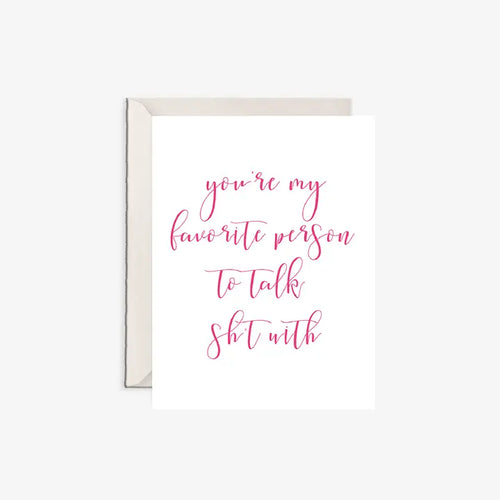 you're my
favorite person
to talk
sh*t with